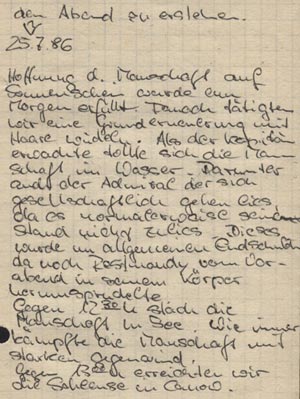 den Abend zu erstehen.
25.7.86
Hoffnung d. Manschaft auf
Sonnenschein wurde am
Morgen erfüllt. Danach tätigten
wir eine Grunderneuerung mit
Haare wurden. Als der Kapitän
erwachte tollte sich die Man-
schaft im Wasser. Darunter
auch der Admiral der sich
gesellschaftlich gehen lies,
da es normalerweise seinem
Stand nicht zulies. Dieses
wurde im allgemeinen Entschuldi
da noch Restbrandy vom Vor-
abend in seinem Körper
herumsprudelte.
Gegen stach die
Manschaft in See. Wie immer
kämpfte die Manschaft mit
starken Gegenwind.
Gegen erreichten wir
die Schleuse in Canow.